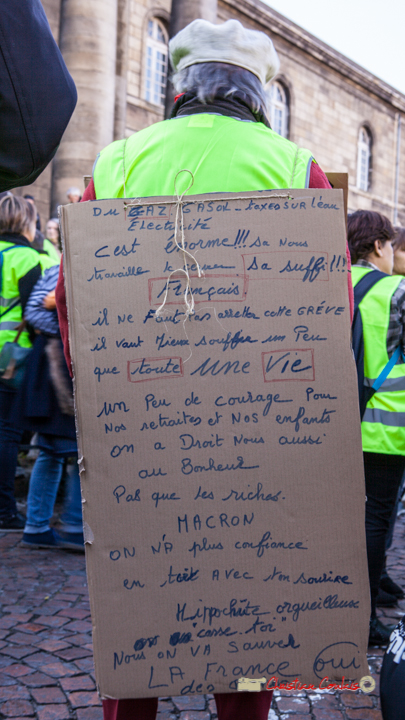 DU GAZ. GASOL - taxes SUR l'eau
Électricité
C'est énorme!!! sa Nous
travaille le sa suffi!!!
Français
il Ne Faut Pas arretter cette GRÈVE
il vaut Mieux souffrir un Peu
que toute une Vie
un Peu de courage Pour
Nos retraites et Nos enfants
on a Droit Nous aussi
au Bonheur
Pas que les riches.
MACRON
ON N'A plus confiance
en toit AVEC ton sourire
Hippocrite orgueilleux
casse toi"
Nous ON VA Sauver
LA France Oui
des
Christian Coulais